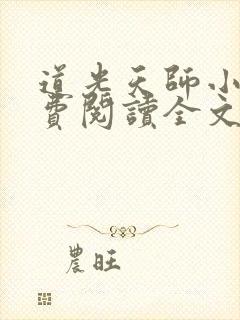 道光天師小
費閱讀全文
農旺